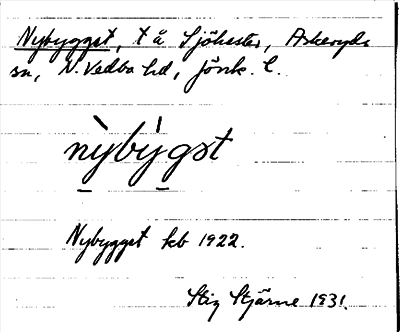 Nybygget, t å Sjöhester, Askeryds
sn, N. Vedbo hd, Jönk. l.
nỳ̠bỳ̠gət
Nybygget kb 1922.
Stig Stjärne 1931.